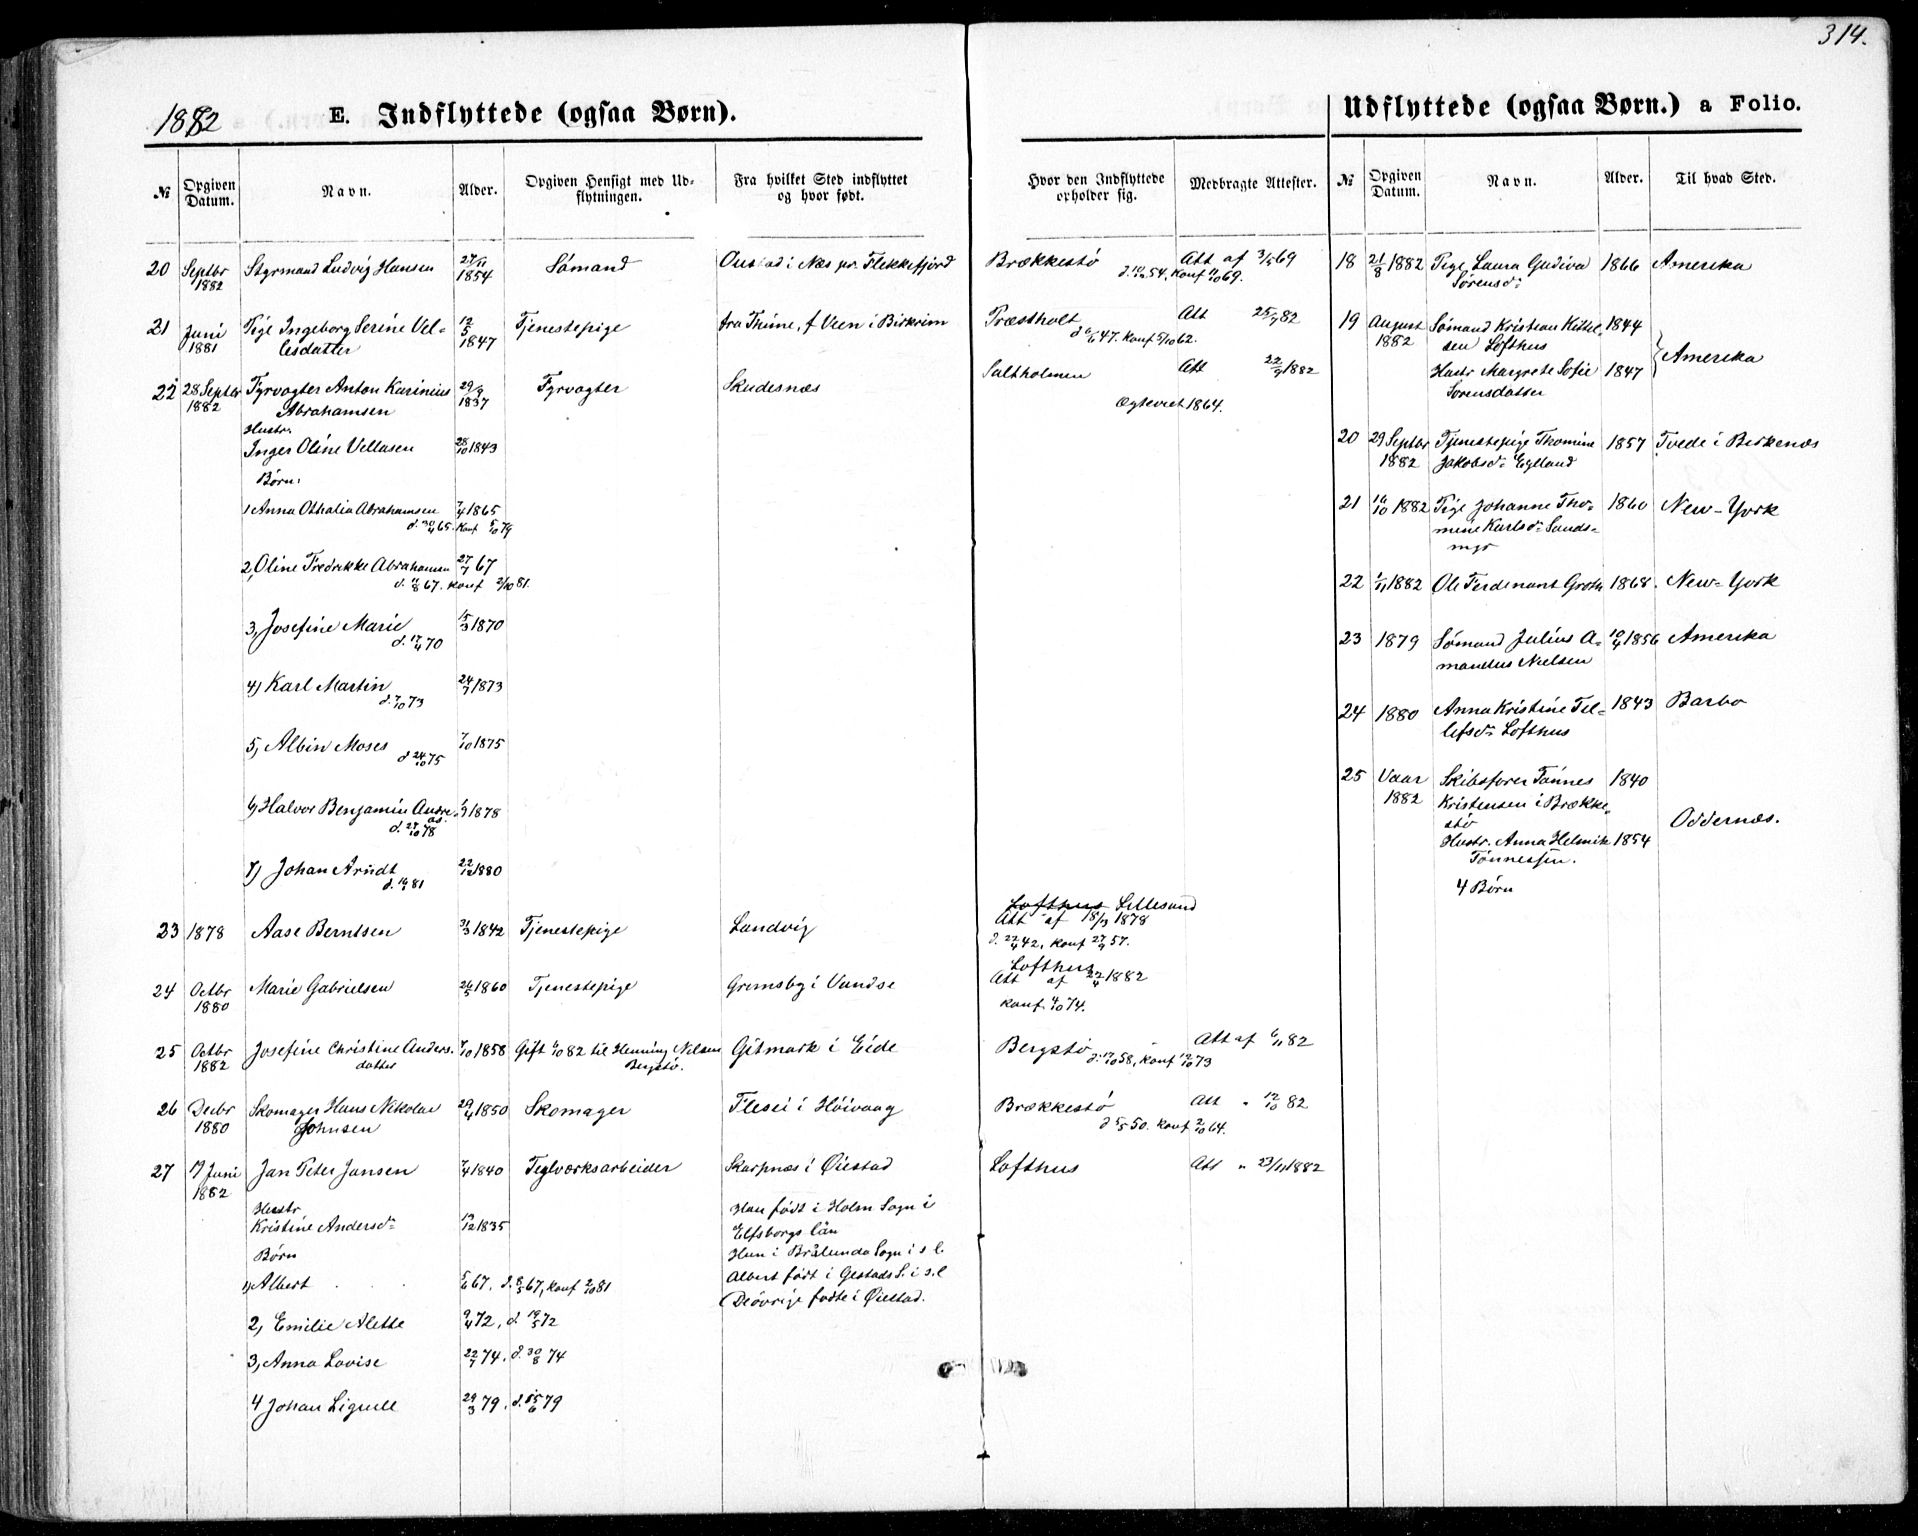 314.
1882
E. Indflyttede (ogsaa Børn).
№
Opgiven Datum.
Navn.
Alder.
Opgiven Hensigt med Udflytningen.
Fra hvilket Sted indflyttet og hvor født.
Hvor den Indflyttede opholder sig.
Medbragte Attester.
20 Septbr Styrmand Ludvig Hansen 27/11 Sömand Oustad i Næs pr. Flekkefjord Brækkestö Att af 3/5 69
1882 1854 d. 54, konf 69.
21 Juni Pige Ingeborg Serine Vel- 12/5 Tjenestepige fra Thime, f Veen i Birkrim Præstholt Att 25/7 82
1881 lesdatter 1847 d 47. konf 5/10 62.
22 28 Septbr Fyrvogter Anton Karinius 29/ Fyrvogter Skudesnæs Saltholmen Att 22/9 1882
1882 Abrahamsen 1837 Ægteviet 1864.
Hustr.
Inger Oline Vellasen 28/10 1843
Børn:
1, Anna Othalia Abrahamsen 7/4 1865
d. 30/4 65. konf 5/10 79
2, Oline Fredrikke Abrahamsen 27/7 67
d. 11/8 67. konf 2/10 81.
3, Josefine Marie 15/3 1870
d. 17/4 70
4) Karl Martin 24/7 1873
d. 7/10 73
5, Albin Moses 7/10 1875
d 24/10 75
6, Halvor Benjamin Andre- 1/9 1878
as.
d. 27/10 78
7) Johan Arndt 22/12 1880
d. 81
Lofthus Lillesand
23 1878 Aase Berntsen 31/3 1842 Tjenestepige Landvig Att af 18/3 1878
d. 22/4 42, konf 27/9 57.
Lofthus
24 Octbr Marie Gabrielsen 26/5 1860 Tjenestepige Gremsby i Vandse Att af 22/4 1882
1880 konf 4/10 74.
25 Octbr Josefine Christine Anders- 7/10 1858 Gift 82 til Henning Nilsen Gitmark i Eide Bergstö Att af 6/11 82
1882 datter Bergstö. d. 58, konf 12/10 73
26 Debr Skomager Hans Nikolai 29/4 1850 Skomager Flesei i Höivaag Brækkestö Att " 12/10 82
1880 Johnsen d 5/5 50. konf 2/10 64.
27 17 Juni Jan Peter Jansen 7/4 1840 Teglværksarbeider Skarpnæs i Øiestad Lofthus Att " 23/11 1882
1882
Hustr Han født i Holm Sogn i
Kristine Andersd 1835 Elfsborgs län
Børn Hun i Brålunda Sogn i s l.
1) Albert 5/6 67, d. 67, konf 2/10 81 Albert født i Gestads S. i s. l
De övrige födte i Øiestad.
2, Emilie Alette 9/4 72, d. 19/5 72
3, Anna Lovise 22/7 74, d. 30/8 74
4 Johan Lignell 29/3 79, d. 15/6 79
Udflyttede (ogsaa Børn.) a Folio.
№
Opgiven Datum.
Navn.
Alder.
Til hvad Sted.
18 21/8 1882 Pige Laura Gudiva 1866 Amerika
Sørensd.
19 August Sømand Kristian Kittel- 1844
1882 sen Lofthus
Amerika
Hustr Margrete Sofie 1847
Sorensdatter
20 29 Septbr Tjenestepige Thomine 1857 Tvede i Birkenæs
1882 Jakobsd. Eylland
21 1882 Pige Johanne Tho- 1860 New-York
mine Karlsd. Sands-
myr
22 1/11 1882 Ole Ferdinant Groth 1868. New-York
23 1879 Sømand Julius A- 1856 Amerika
mandus Nielsen
24 1880 Anna Kristine Tel- 1843 Barbo
lefsd. Lofthus
25 Vaar Skibsforer Tönnes 1840
1882 Kristensen i Brække-
stö Oddernæs.
Hustr. Anna Helmik 1854
Tönnessen.
4 Børn